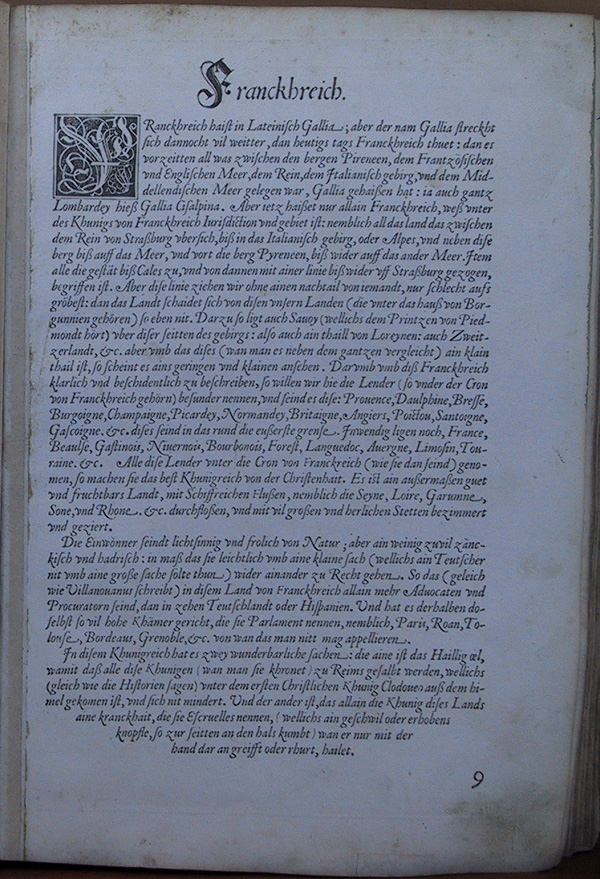 Franckhreich.
FRanckhreich haist in Lateinisch Gallia; aber der nam Gallia streckht
sich dannocht vil weitter, dan heutigs tags Franckhreich thuet: dan es
vorzeitten all was zwischen den bergen Pireneen, dem Frantzösischen
vnd Englischen Meer, dem Rein, dem Italianisch gebirg, vnd dem Mid-
dellendischen Meer gelegen war, Gallia gehaißen hat: ia auch gantz
Lombardey hieß Gallia Cisalpina. Aber ietz haißet nur allain Franckhreich, weß vnter
des Khunigs von Franckhreich Iurisdiction vnd gebiet ist: nemblich all das land das zwischen
dem Rein von Straßburg vbersich, biß in das Italianisch gebirg, oder Alpes, vnd neben dise
berg biß auff das Meer, vnd vort die berg Pyreneen, biß wider auff das ander Meer. Item
alle die gestät biß Cales zu, vnd von dannen mit ainer linie biß wider vff Straßburg gezogen,
begriffen ist. Aber dise linie ziehen wir ohne ainen nachtail von iemandt, nur schlecht aufs
gröbest: dan das Landt schaidet sich von disen vnsern Landen (die vnter das hauß von Bor-
gunnien gehören) so eben nit. Darzu so ligt auch Sauoy (wellichs dem Printzen von Pied-
mondt hört) vber diser seitten des gebirgs: also auch ain thaill von Loreynen: auch Zweit-
zerlandt, &c. aber vmb das dises (wan man es neben dem gantzen vergleicht) ain klain
thail ist, so scheint es ains geringen vnd klainen ansehen. Darvmb vmb diß Franckhreich
klarlich vnd beschidentlich zu beschreiben, so willen wir hie die Lender (so vnder der Cron
von Franckhreich gehörn) besunder nennen, vnd seind es dise: Prouence, Daulphine, Bresse,
Burgoigne, Champaigne, Picardey, Normandey, Britaigne, Angiers, Poictou, Santoigne,
Gascoigne. &c. dises seind in das rund die eußerste grense. Inwendig ligen noch, France,
Beaulse, Gastinois, Niuernois, Bourbonois, Forest, Languedoc, Auergne, Limosin, Tou-
raine. &c. Alle dise Lender vnter die Cron von Franckreich (wie sie dan seind) geno-
men, so machen sie das best Khunigreich von der Christenhait. Es ist ain außermaßen guet
vnd fruchtbars Landt, mit Schiffreichen Flußen, nemblich die Seyne, Loire, Garumne,
Sone, vnd Rhone. &c. durchfloßen, vnd mit vil großen vnd herlichen Stetten bezimmert
vnd geziert.
Die Einwönner seindt lichtsinnig vnd frolich von Natur; aber ain weinig zuvil zänc-
kisch vnd hadrisch: in maß das sie leichtlich vmb aine klaine sach (wellichs ain Teutscher
nit vmb aine große sache solte thun) wider ainander zu Recht gehen. So das (geleich
wie Villanouanus schreibt) in disem Land von Franckhreich allain mehr Aduocaten vnd
Procuratorn seind, dan in zehen Teutschlandt oder Hispanien. Vnd hat es derhalben do-
selbst so vil hohe Khämergericht, die sie Parlament nennen, nemblich, Paris, Roan, To-
louse, Bordeaus, Grenoble, &c. von wan das man nitt mag appellieren.
In disem Khunigreich hat es zwey wunderbarliche sachen: die aine ist das Haillig œl,
wamit daß alle dise Khunigen (wan man sie khronet) zu Reims gesalbt werden, wellichs
(gleich wie die Historien sagen) vnter dem ersten Christlichen Khunig Clodoueo auß dem hi-
mel gekomen ist, vnd sich nit mindert. Vnd der ander ist, das allain die Khunig dises Lands
aine kranckhait, die sie Escruelles nennen, (wellichs ain geschwil oder erhobens
knopfle, so zur seitten an den hals kumbt) wan er nur mit der
hand dar an greifft oder rhurt, hailet.
9